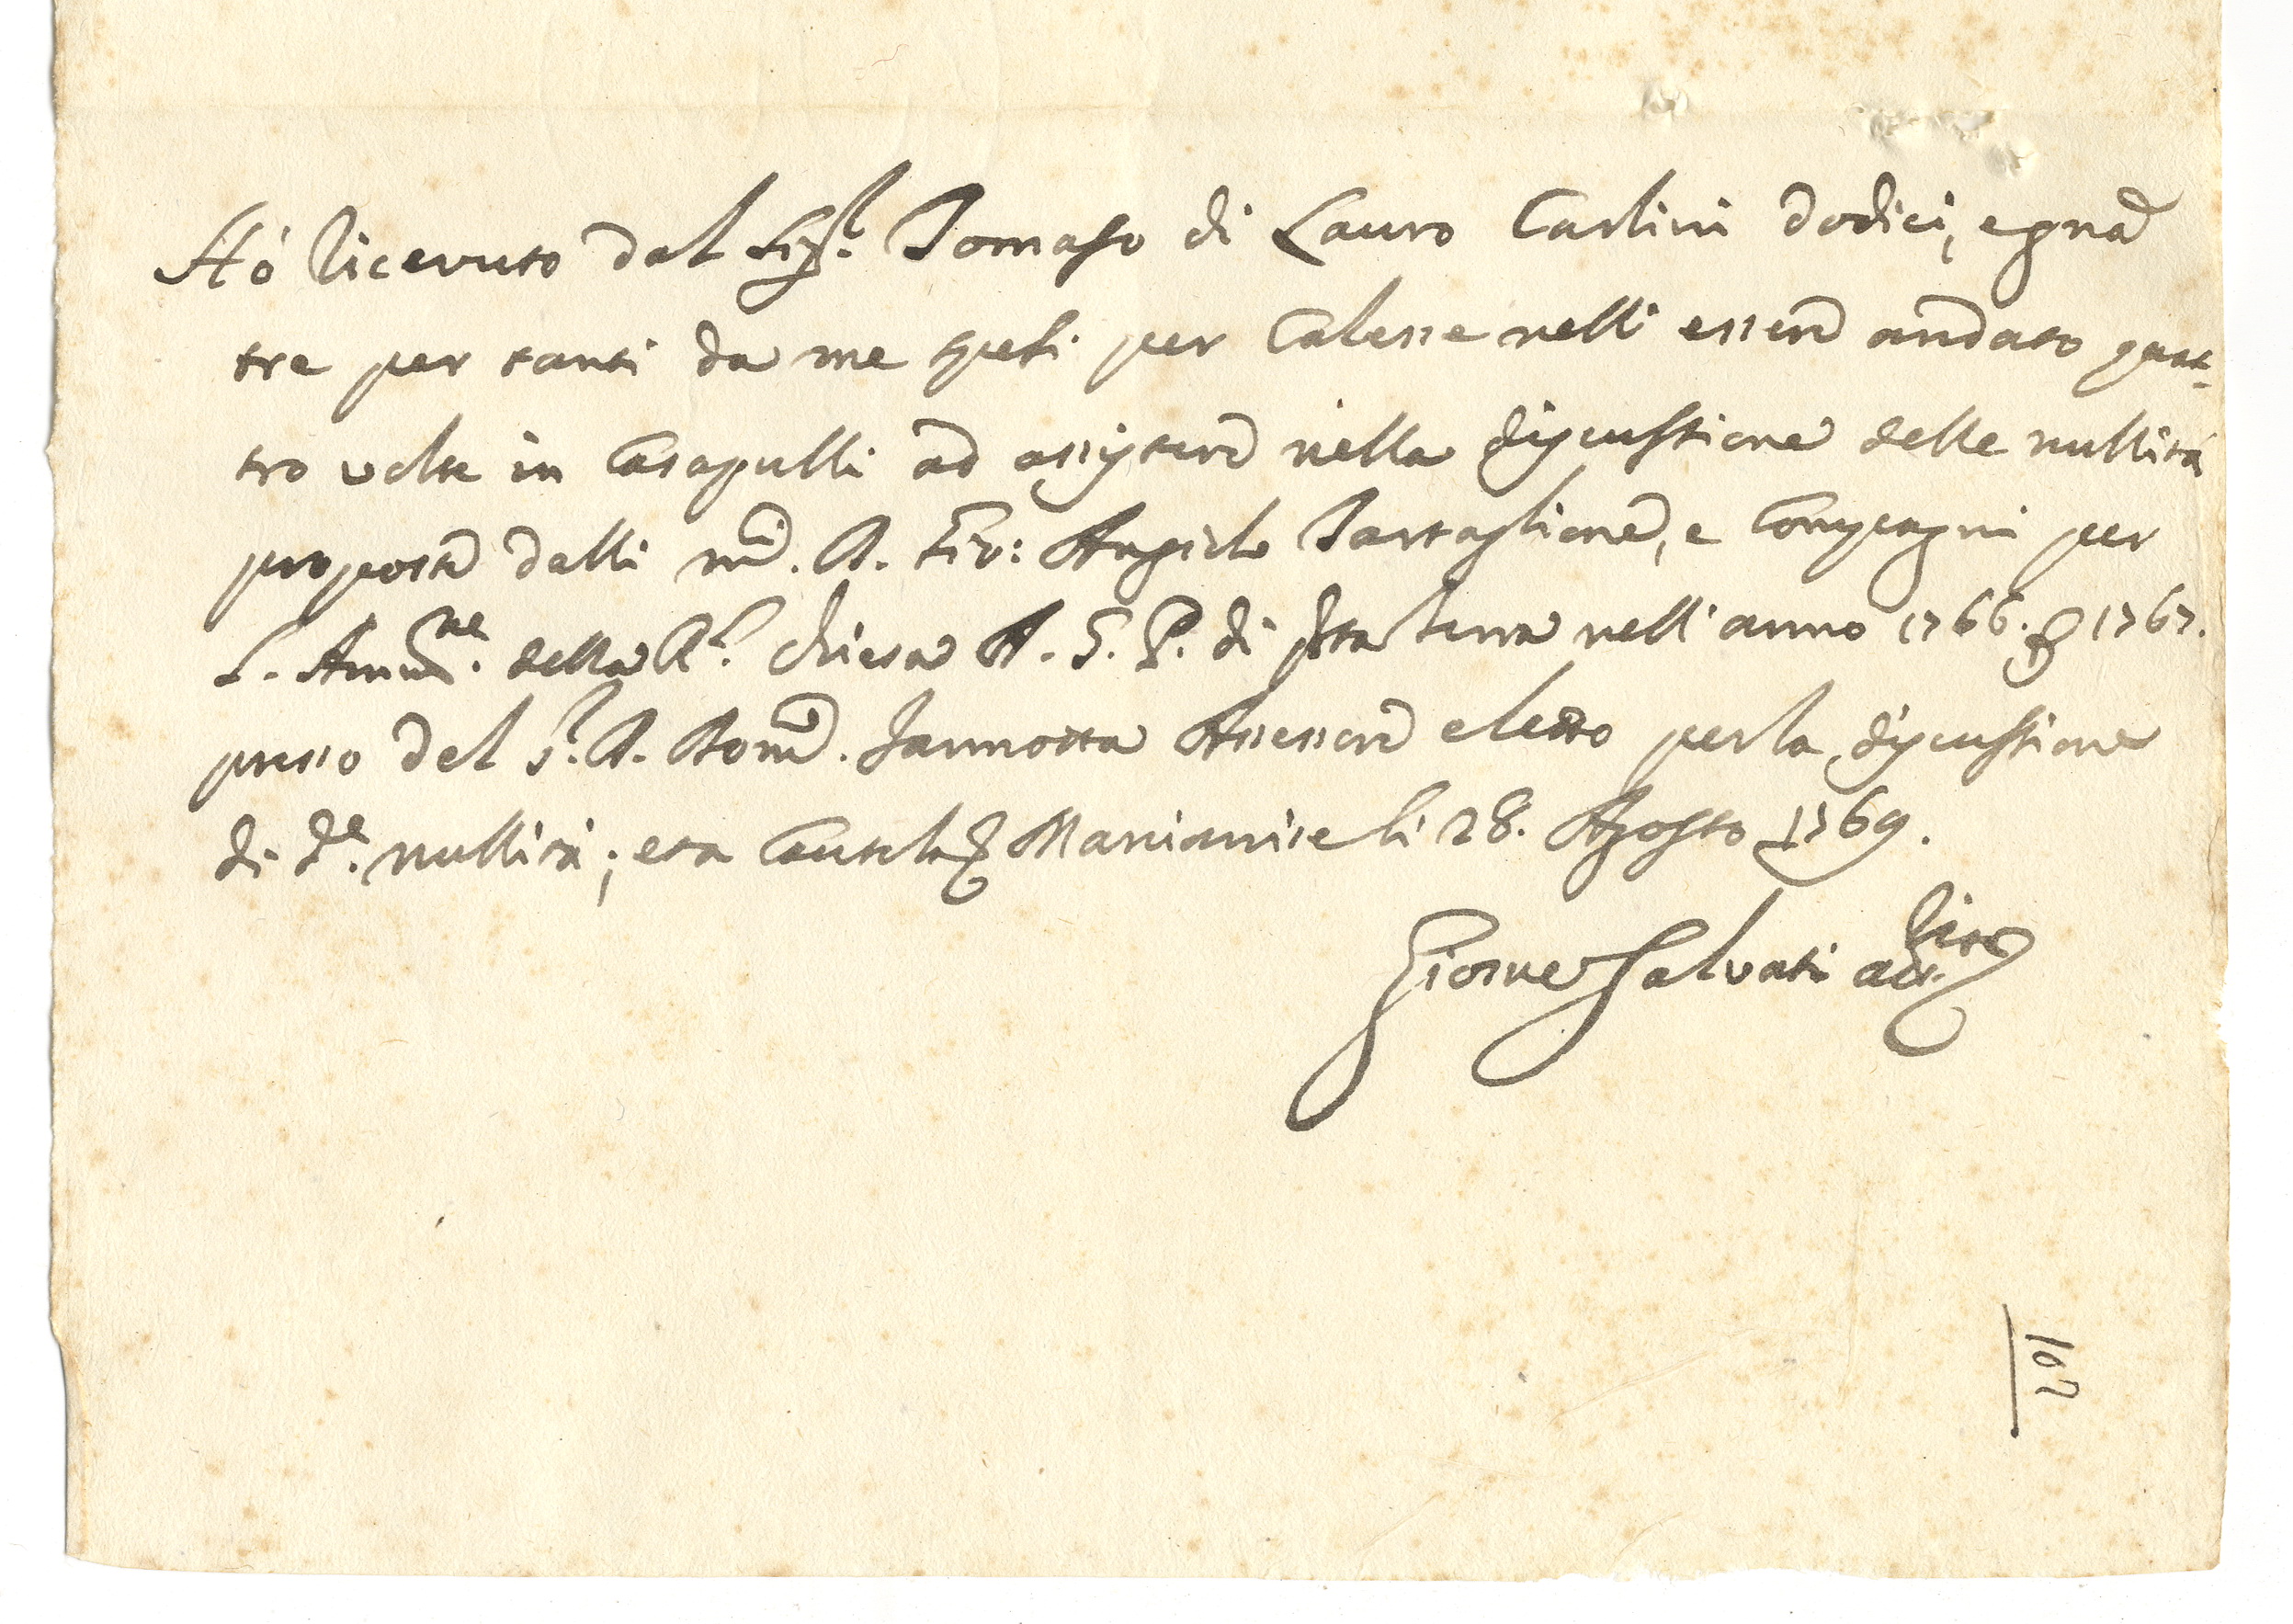 Hò ricevuto dal Sig.r Tomaso di Lauro Carlini dodici, e grana
tre per tanti da me spesi per Calesse nelli essere andato quat-
tro volte in Casapulli ad assistere nella discussione delle nullità
proposte dalli m.ci D. Gio: Angielo Tartaglione, e Compagni per
l'Amm.ne della R.l Chiesa A. G. P. di q.sta terra nell'anno 1766. 1767.
presso del S.r D. Dom.co Jannotta Assessore eletto per la discussione
di d.e nullità; e a Cautela Marcianise li 28. Agosto 1769.
Giosue Salvati
102